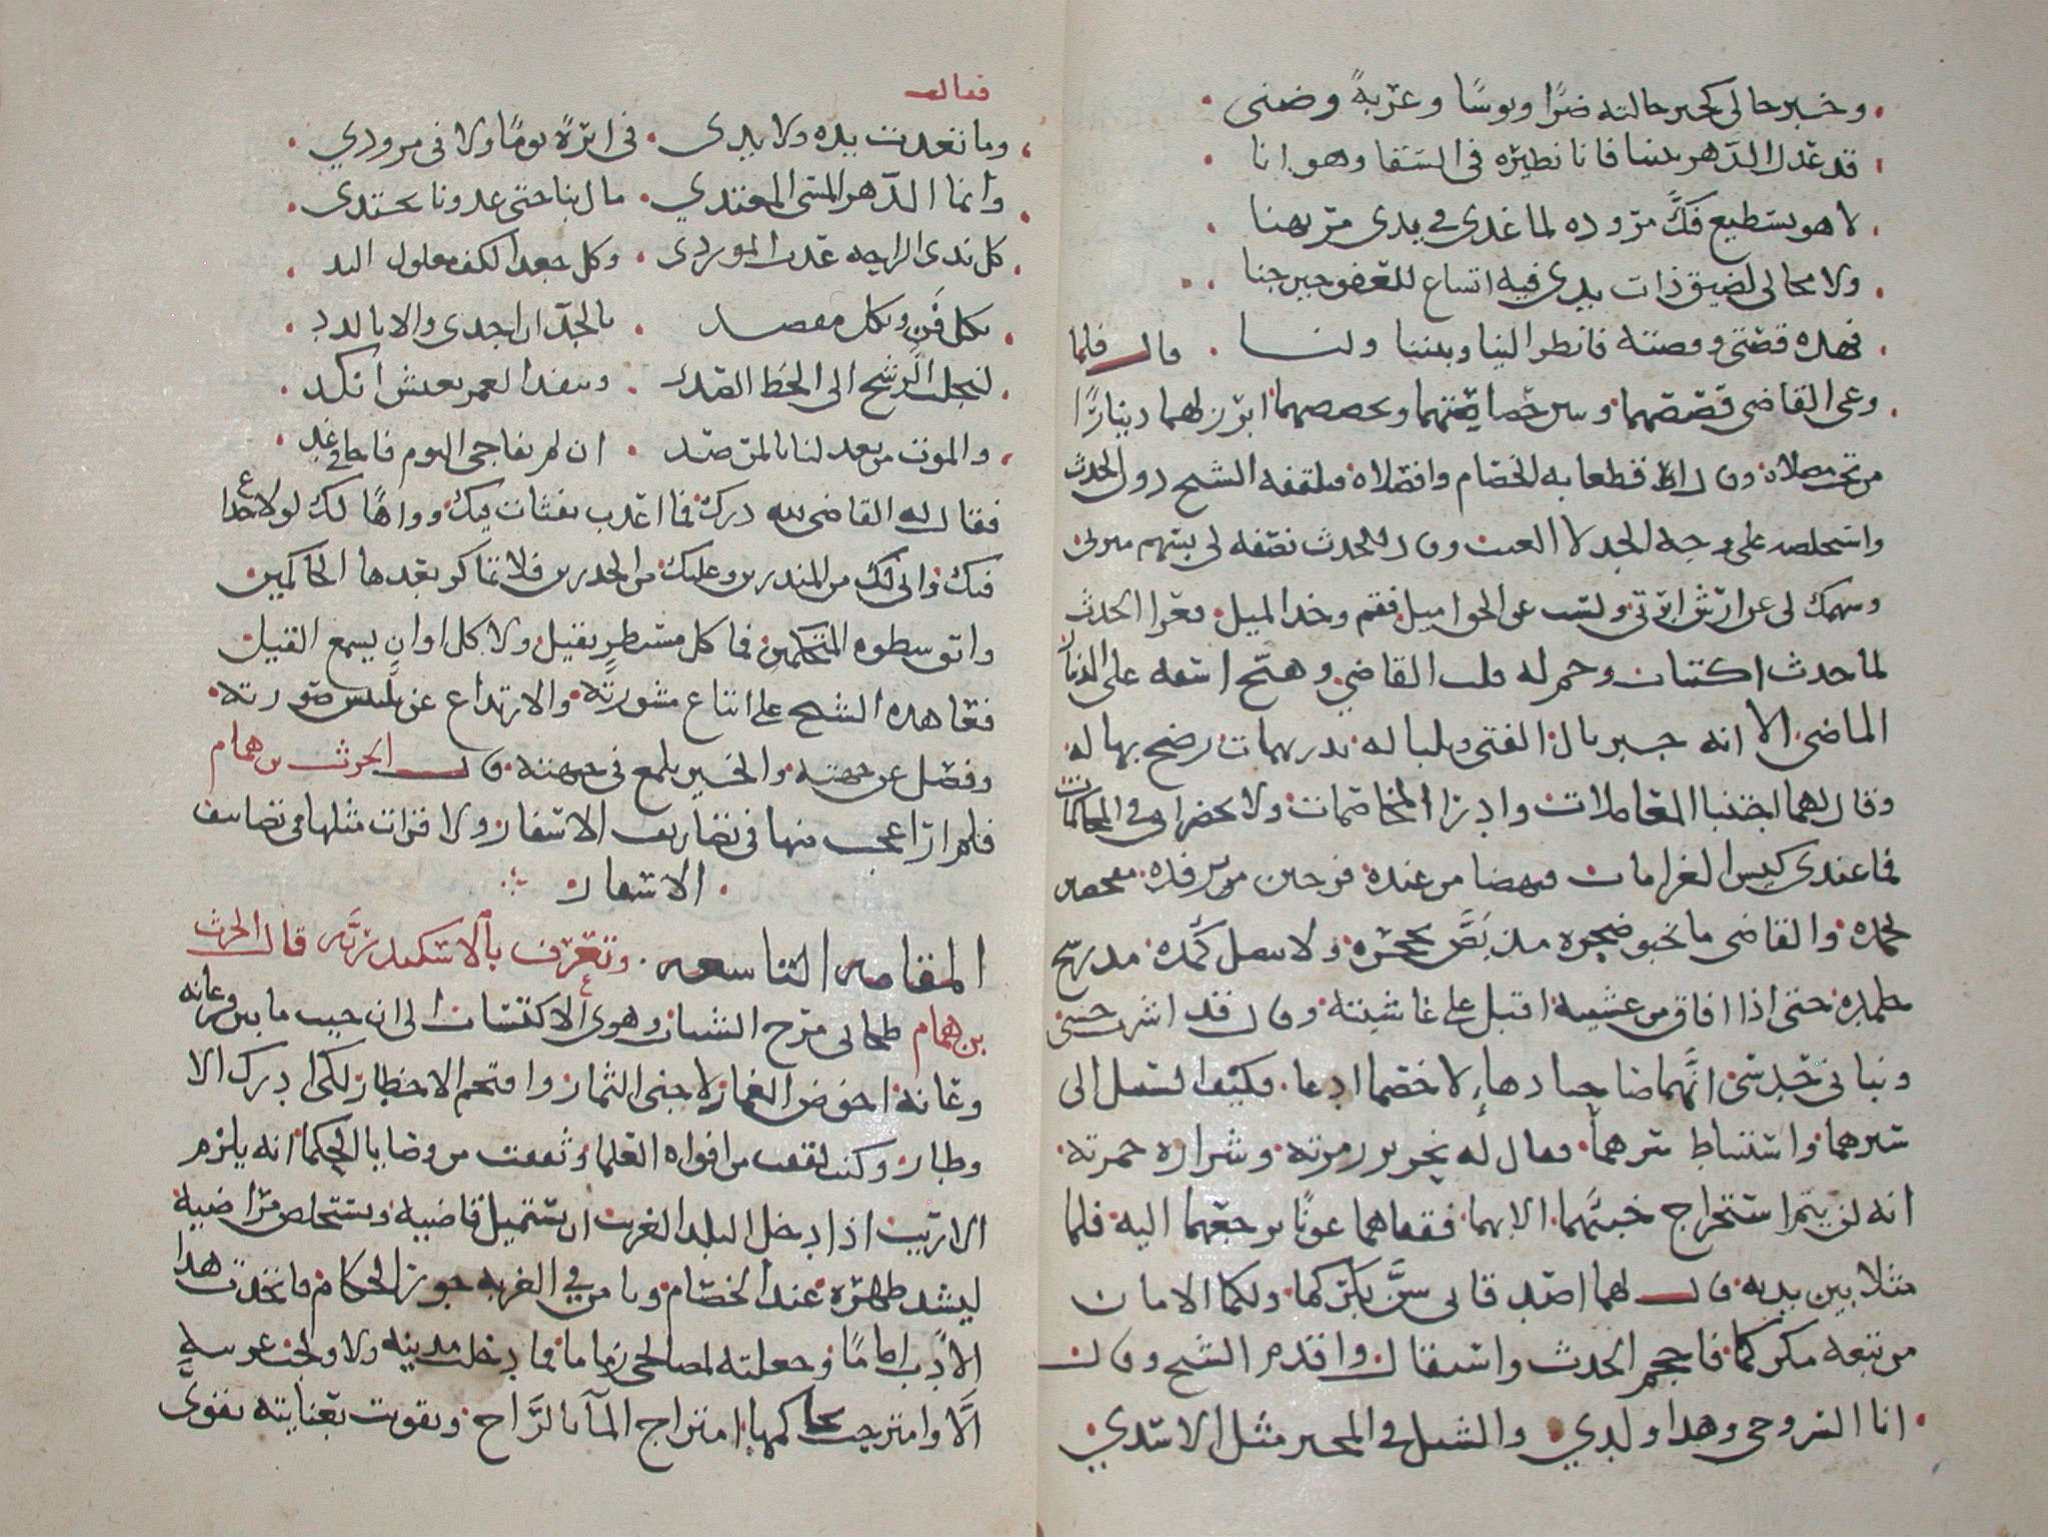 وخبر حالي كخبر حالته ضرا وبوسا وغربة وضنى
قد عدل الدهر بيننا فانا نظيره في الشقا وهو انا
لا هو يستطيع فك مروده لما غدى في يدي مرتهنا
ولا مجالي لضيق ذات يدي فيه اتساع للعفو حين جنا
فهذه قصتي وقصته فانظر الينا وبيننا ولنا قال فلما
وعى القاضي قصصهما وتبين خصاصتهما وتخصصهما ابرز لهما دينارا
من تحت مصلاه وقال اقطعا به الخصام وافصلاه فتلقفه الشيخ دون الحدث
واستخلصه على وجه الجد لا العبث وقال للحدث نصفه لي بسهم مبرتي
وسهمك لي عن ارش ابرتي ولست عن الحق اميل فقم وخذ الميل فعرا الحدث
لما حدث اكتئاب وجم له قلب القاضي وهيج اسفه على الدينار
الماضي الا انه جبر بال الفتى وبلباله بدريهمات رضخ بها له
وقال لهما اجتنبا المعاملات وادرا المخاصمات ولا تحضراني في المحاكمات
فما عندي كيس الغرامات فنهضا من عنده فرحين برفده مفصحين
بحمده والقاضي ما يخبو ضجره مذ بض حجره ولا ينصل كمده مذ رشح
جلمده حتى اذا افاق من غشيته اقبل على غاشيته وقال قد اشرب حسي
ونباني حدسي انهما صاحبا دهاء لا خصما ادعا فكيف السبيل الى
سبرهما واستنباط سرهما فقال له نحرير زمرته وشرارة جمرته
انه لن يتم استخراج خبيهما الا بهما فقفاهما عونا يرجعهما اليه فلما
مثلا بين يديه قال لهما اصدقاني سن بكركما ولكما الامان
من تبعة مكركما فاحجم الحدث واستقال واقدم الشيخ وقال
انا السروجي وهذا ولدي والشبل في المخبر مثل الاسدي
وما تعدت يده ولا يدي في ابرة يوما ولا في مرودي
وانما الدهر المسي المعتدي مال بنا حتى غدونا نجتدي
كل ندي الراحة عذب الموردي وكل جعد الكف مغلول اليد
بكل فن وبكل مقصد بالجد ان اجدى والا بالدد
لنجلب الرشح الى الحظ الصد وننفد العمر بعيش انكد
والموت من بعد لنا بالمرصد ان لم يفاجي اليوم فاجا في غد
فقال له القاضي لله درك فما اعذب نفثات فيك وواها لك لولا خداع
فيك واني لك من المنذرين وعليك من الحذرين فلا تماكر بعدها الحاكمين
واتق سطوة المتحكمين فما كل مسيطر يقيل ولا كل اوان يسمع القيل
فعاهده الشيخ على اتباع مشورته والارتداع عن تلبيس صورته
وفصل عن جهته والختر يلمع في جبهته قال الحرث بن همام
فلم ار اعجب منها في تصاريف الاسفار ولا قرات مثلها في تصانيف
الاسفار
المقامه التاسعه وتعرف بالاسكندريه قال الحرث
بن همام طحا بي مرح الشباب وهوى الاكتساب الى ان جبت ما بين فرغانه
وغانة اخوض الغمار لاجني الثمار واقتحم الاخطار لكي ادرك الا
وطار وكنت لقفت من افواه العلما وثقفت من وصايا الحكما انه يلزم
الاريب اذا دخل البلد الغريب ان يستميل قاضيه ويستخلص مراضيه
ليشد ظهره عند الخصام ويامن في الغربه جور الحكام فاتخذت هذا
الادب اماما وجعلته لمصالحي زماما فما دخلت مدينه ولا ولجت عرينه
الا وامتزجت بحاكمها امتزاج المآ بالراح وتقويت بعنايته تقوى